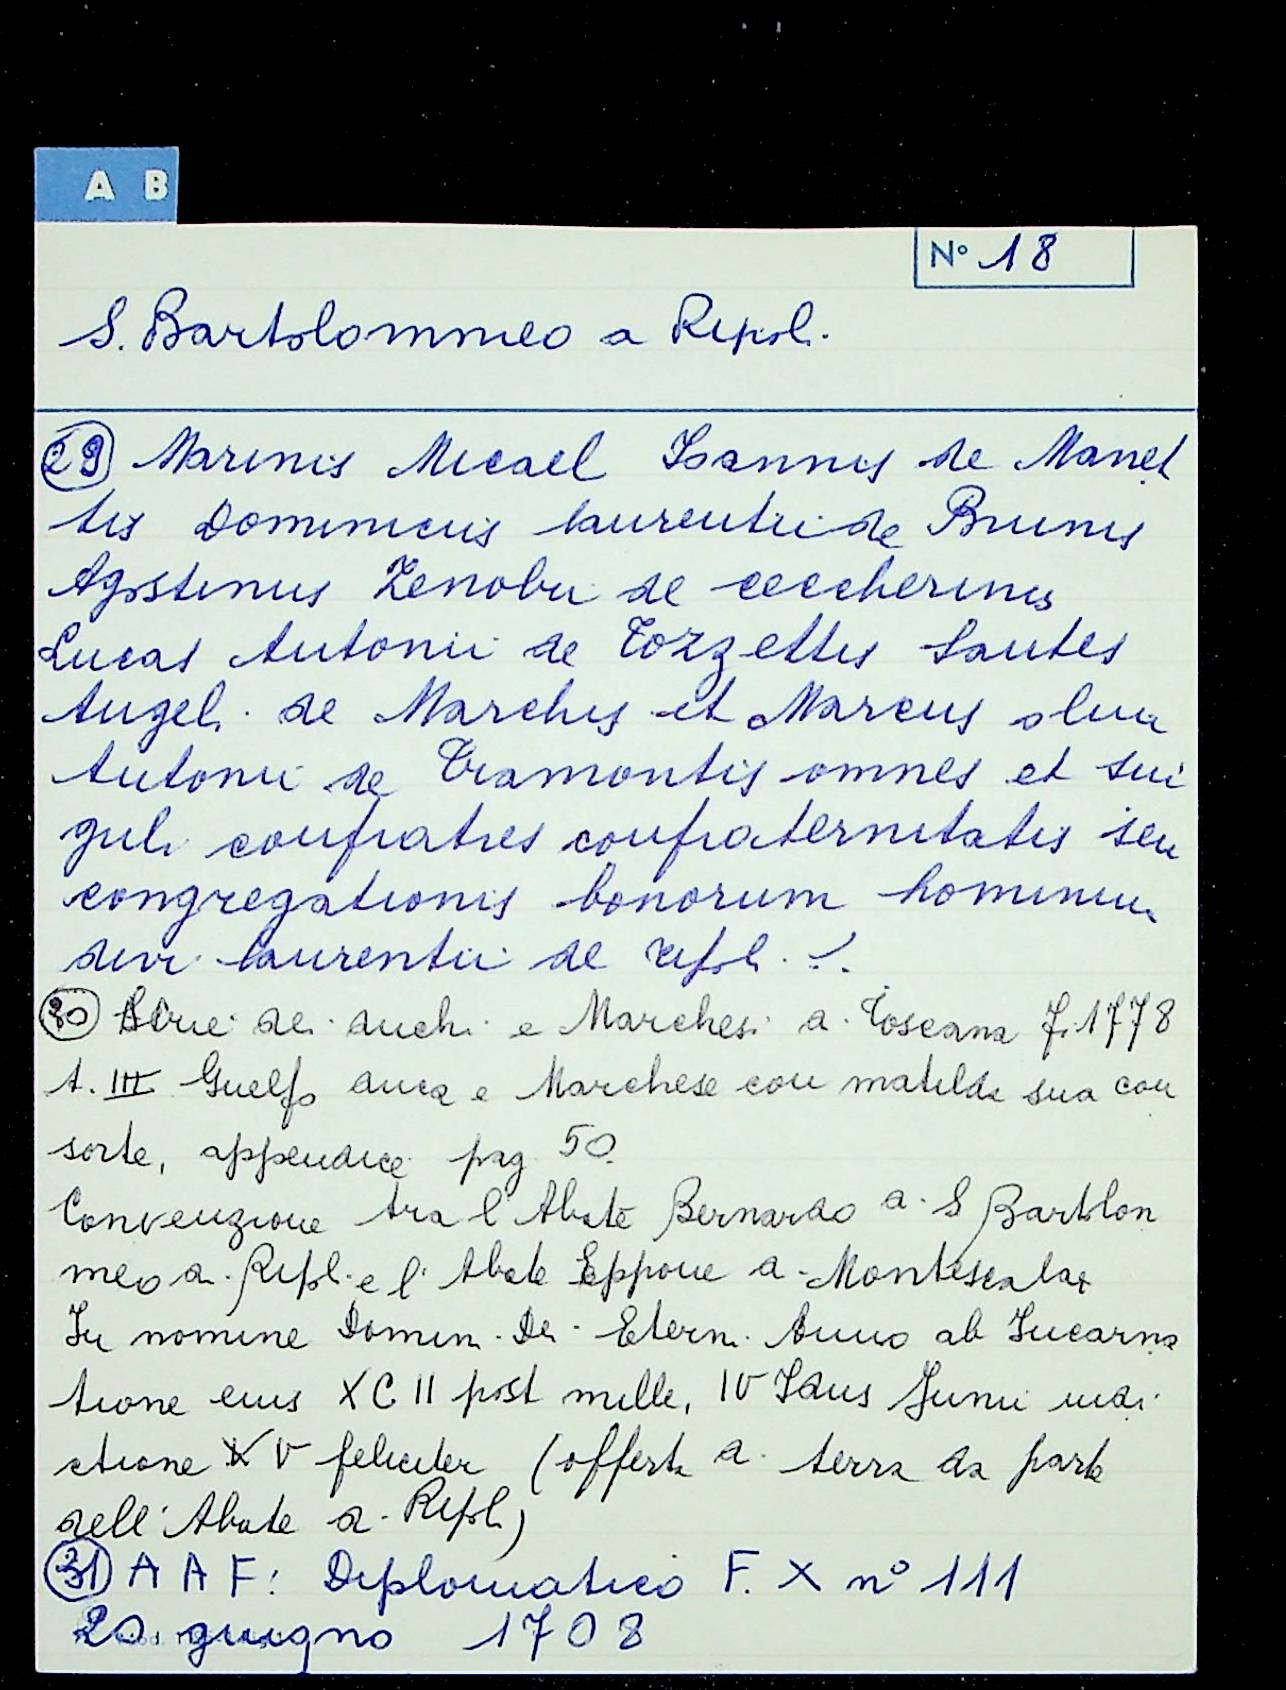 A B
N° 18
S. Bartolommeo a Ripol.
29 Marinis Micael Ioannis de Manet
tis Dominicus laurentii de Brunis
Agostinus Zenobii de ceccherinis
Lucas Antonii de Tozzettis Santes
Angeli de Marchis et Marcus olim
Antonii de Tramontis omnes et sin
guli confratres confraternitatis seu
congregationis bonorum hominum
divi laurentii de ripoli
30 dei duchi e Marchesi di Toscana Fi 1778
t. III Guelfo duca e Marchese con matilda sua con
sorte, appendice pag 50.
Convenzione tra l'Abate Bernardo di S Bartolom
meo di Ripoli e l'Abate Eppone di Montescalar
In nomine Domini Dei Eterni Anno ab Incarna
tione eius XC II post mille, IV Idus Junii indi
ctione XV feliciter (offerta di terra da parte
dell'Abate di Ripoli)
31 A A F: Diplomatico F. X n° 111
20 giugno 1708